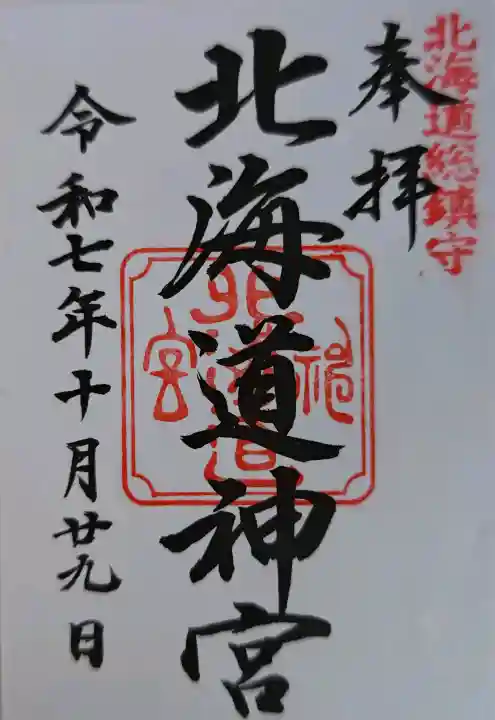 北海道総鎮守
奉拝
北海道神宮
北海道神宮
令和七年十月廿九日